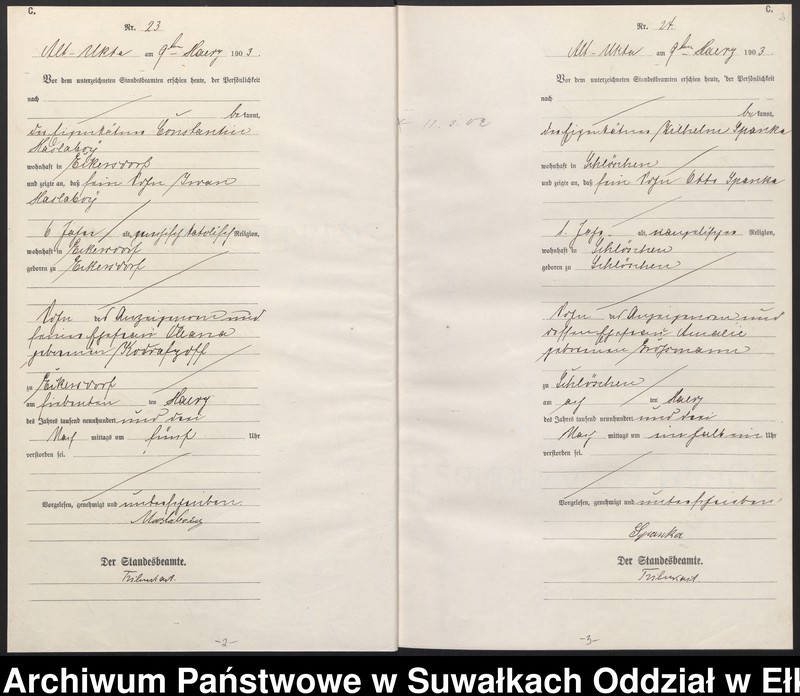 C.
Nr. 23
Alt-Ukta am 9ten Maerz 1903.
Vor dem unterzeichneten Standesbeamten erschien heute, der Persönlichkeit
nach
bekannt,
der Eigentümer Constantin
wohnhaft in Eckersdorf
und zeigte an, daß sein Sohn Iwan
6 Jahre alt, griechisch katolisch Religion,
wohnhaft in Eckersdorf
geboren zu Eckersdorf
Sohn des Anzeigenden und
seiner Ehefrau
geborenen
zu Eckersdorf
am siebenten ten Maerz
des Jahres tausend neunhundert und drei
Nach mittags um fünf Uhr
verstorben sei.
Vorgelesen, genehmigt und unterschrieben.
Der Standesbeamte.
-2-
C.
Nr. 24
Alt-Ukta am 9ten Maerz 1903.
Vor dem unterzeichneten Standesbeamten erschien heute, der Persönlichkeit
nach
bekannt,
der Eigentümer Wilhelm Spanka
wohnhaft in Schlösschen
und zeigte an, daß sein Sohn Otto Spanka
1 Jahr alt, evangelischer Religion,
wohnhaft in Schlösschen
geboren zu Schlösschen
Sohn des Anzeigenden und
dessen Ehefrau Amalie
geborenen
zu Schlösschen
am acht ten Maerz
des Jahres tausend neunhundert und drei
Nach mittags um ein halb ein Uhr
verstorben sei.
Vorgelesen, genehmigt und unterschrieben.
Spanka
Der Standesbeamte.
-3-
Archiwum Państwowe w Suwałkach Oddział w Eł